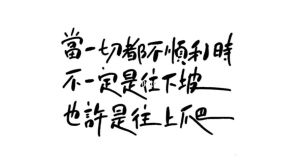 當一切都不順利時
不一定是往下坡
也許是往上爬